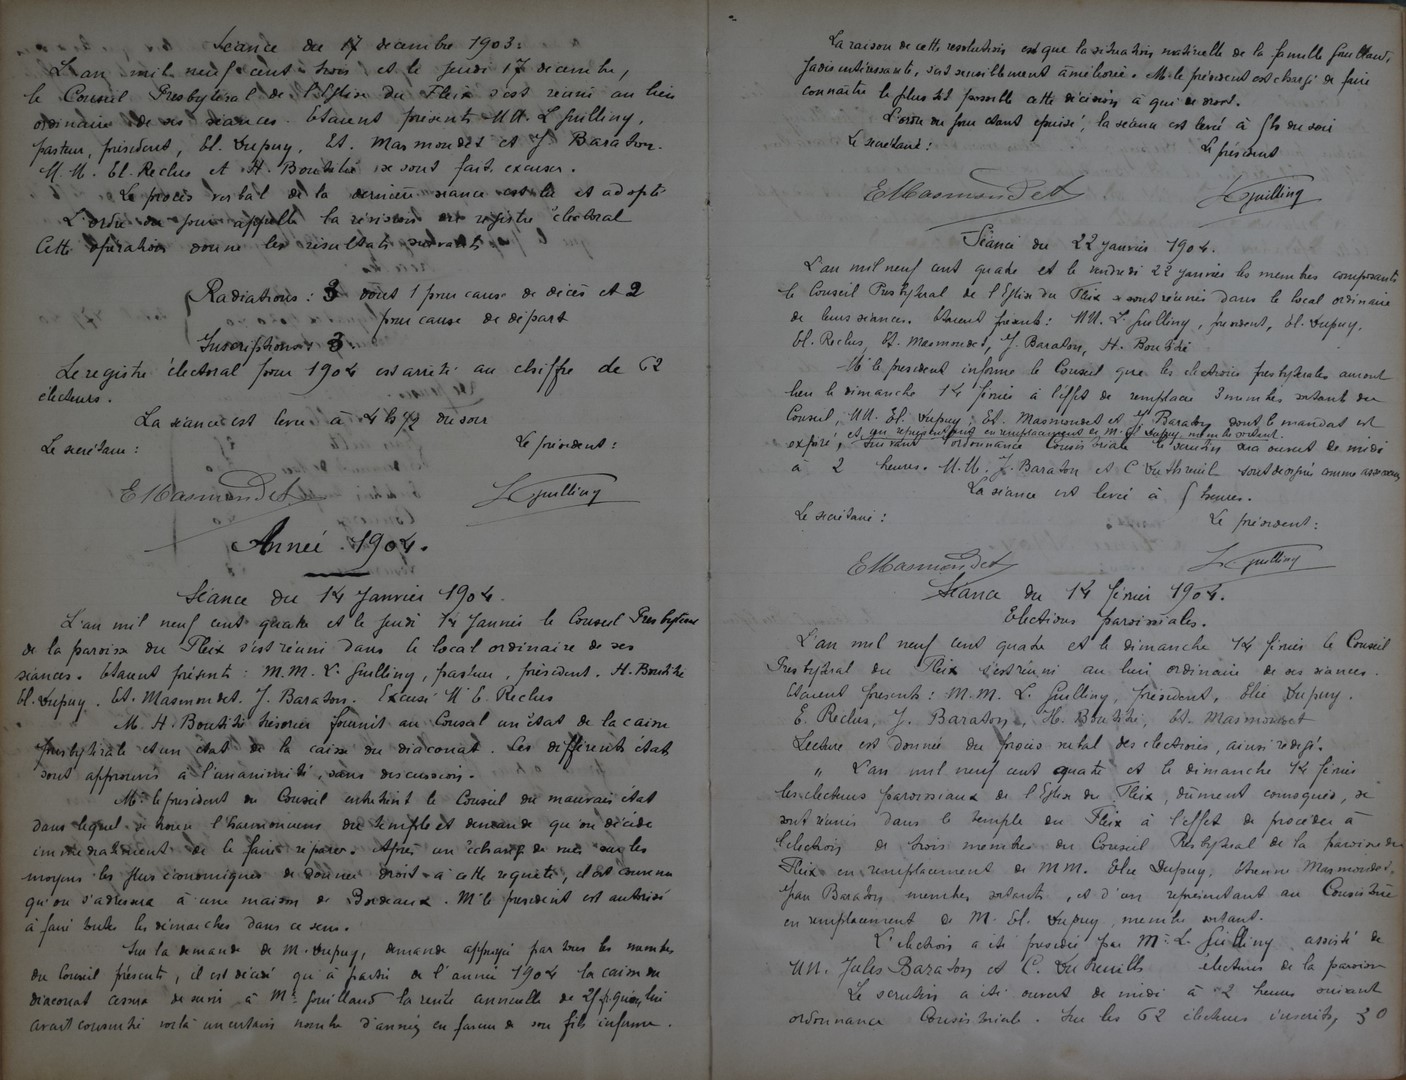 Séance du 17 décembre 1903.
L'an mil neuf cent trois et le jeudi 17 décembre,
le Conseil Presbytéral de l'Eglise du Fleix s'est réuni au lieu
ordinaire de ses séances. Etaient présents MM. L. Guilling,
pasteur, président, El. Dupuy, Et. Masmondet et J. Baraton.
M.M. El. Reclus et H. Boutité se sont fait excuser.
Le procès verbal de la dernière séance est lu et adopté
L'ordre du jour appelle la révision du registre électoral
Cette opération donne les résultats suivants
Radiations : 3 dont 1 pour cause de décès et 2
pour cause de départ
Inscriptions : 3.
Le registre électoral pour 1904 est arrêté au chiffre de 62
électeurs.
La séance est levée à 4 h 1/2 du soir
Le secrétaire : Le président :
E Masmondet L Guilling
Année 1904.
Séance du 14 Janvier 1904.
L'an mil neuf cent quatre et le jeudi 14 Janvier le Conseil Presbytéral
de la paroisse du Fleix s'est réuni dans le local ordinaire de ses
séances. Etaient présents : M.M. L. Guilling, pasteur, président. H. Boutité
El. Dupuy. Et. Masmondet. J. Baraton. Excusé M E. Reclus
M. H. Boutité trésorier fournit au Conseil un état de la caisse
presbytérale et un état de la caisse du diaconat. Les différents états
sont approuvés à l'unanimité, sans discussion.
Mr. le président du Conseil entretient le Conseil du mauvais état
dans lequel se trouve l'harmonium du temple et demande qu'on décide
immédiatement de le faire réparer. Après un échange de vues sur les
moyens les plus économiques de donner droit à cette requête, il est convenu
qu'on s'adressera à une maison de Bordeaux. M le président est autorisé
à faire toutes les démarches dans ce sens.
Sur la demande de M. Dupuy, demande appuyée par tous les membres
du Conseil présents, il est décidé qu'à partir de l'année 1904 la caisse du
diaconat cessera de servir à Mr. Guillaud la rente annuelle de 25 f. qu'on lui
avait consentie voilà un certain nombre d'années en faveur de son fils infirme.
La raison de cette résolution est que la situation matérielle de la famille Guillaud,
jadis intéressante, s'est sensiblement améliorée. M. le président est chargé de faire
connaître le plus tôt possible cette décision à qui de droit.
L'ordre du jour étant épuisé, la séance est levée à 5 h du soir
Le secrétaire : Le président
E Masmondet L Guilling
Séance du 22 janvier 1904.
L'an mil neuf cent quatre et le vendredi 22 janvier les membres composants
le Conseil Presbytéral de l'Eglise du Fleix se sont réunis dans le local ordinaire
de leurs séances. Etaient présents : MM. L. Guilling, président, El. Dupuy.
El. Reclus, Et. Masmondet, J. Baraton, H. Boutité
M. le président informe le Conseil que les élections presbytérales auront
lieu le dimanche 14 février à l'effet de remplacer 3 membres sortant du
Conseil, MM. El. Dupuy, Et. Masmondet et J. Baraton dont le mandat est
et un représentant en remplacement de M. El. Dupuy, membre sortant.
expiré, suivant ordonnance Consistoriale le scrutin sera ouvert de midi
à 2 heures. M.M. J. Baraton et C Dutreuilh sont désignés comme assesseurs
La séance est levée à 5 heures.
Le secrétaire : Le président :
E Masmondet L Guilling
Séance du 14 février 1904.
Elections paroissiales.
L'an mil neuf cent quatre et le dimanche 14 février le Conseil
Presbytéral du Fleix s'est réuni au lieu ordinaire de ses séances.
Etaient présents : M.M. L. Guilling, président, Elie Dupuy.
E. Reclus, J. Baraton, H. Boutité, Et. Masmondet
Lecture est donnée du procès verbal des élections, ainsi rédigé.
" L'an mil neuf cent quatre et le dimanche 14 février
les électeurs paroissiaux de l'Eglise du Fleix, dûment convoqués, se
sont réunis dans le temple du Fleix à l'effet de procéder à
l'élection de trois membres du Conseil Presbytéral de la paroisse du
Fleix en remplacement de MM. Elie Dupuy, Etienne Masmondet,
Jean Baraton membres sortants, et d'un représentant au Consistoire
en remplacement de M. El. Dupuy, membre sortant.
L'élection a été présidée par Mr. L. Guilling assisté de
MM. Jules Baraton et C. Dutreuilh électeurs de la paroisse
Le scrutin a été ouvert de midi à 2 heures suivant
ordonnance Consistoriale. Sur les 62 électeurs inscrits, 30